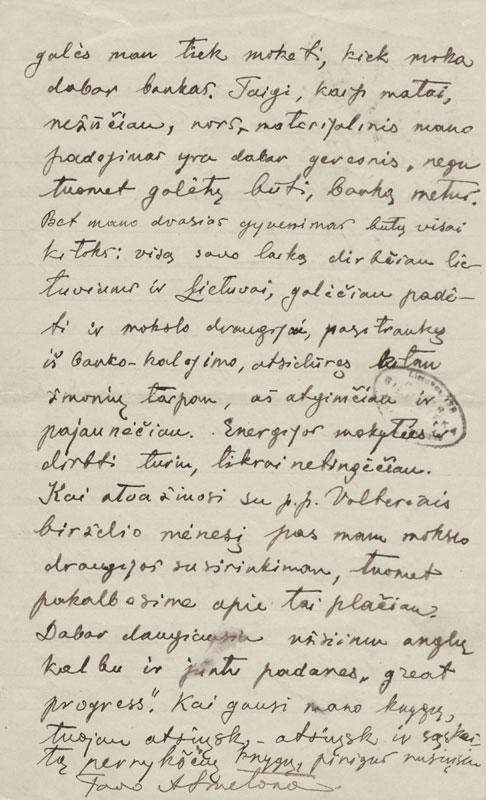 galės man tiek mokėti, kiek moka
dabar bankas. Taigi, kaip matai,
nežūčiau, nors materijalinis mano
padėjimas yra dabar geresnis, negu
tuomet galėtų būti, banką metus.
Bet mano dvasios gyvenimas būtų visai
kitoks: visą savo laiką dirbčiau lie-
tuviams ir Lietuvai, galėčiau padė-
ti ir mokslo draugijai, pasitraukęs
iš banko-kalėjimo, atsidūręs kitam
žmonių tarpan, aš atgimčiau ir
pajaunėčiau. Energijos mokyties ir
dirbti turiu, tikrai netingėčiau.
Kai atvažiuosi su p.p. Volteriais
birželio mėnesį pas mum mokslo
draugijos susirinkiman, tuomet
pakalbėsime apie tai plačiau.
Dabar daugiausia užsiimu anglų
kalba ir jau padaręs „great
progress“. Kai gausi mano knygų,
tuojau atsiųsk, – atsiųsk ir sąskai-
tą pernykščių knygų, pinigus nusiųsiu
Tavo ASmetona